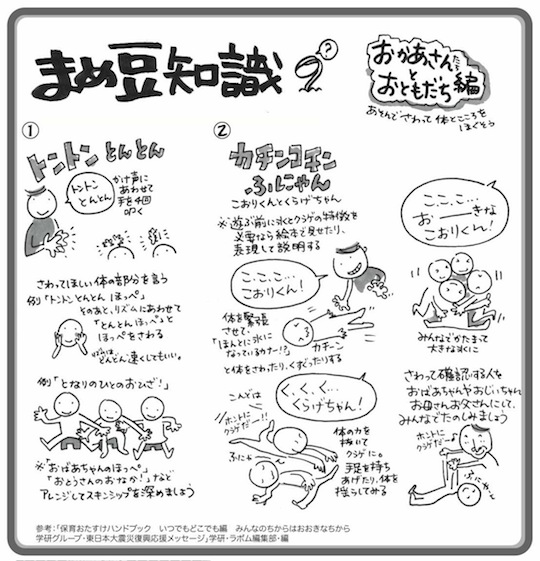 まめ豆知識
?
おかあさんたち
と
おともだち編
あそんで さわって 体とこころを
ほぐそう
①
トントン とんとん
トントン
とんとん
かけ声に
あわせて
手を4回
叩く
さわってほしい体の部分を言う
例「トントン とんとん ほっぺ」
そのあと、リズムにあわせて
「とんとん ほっぺ」と
ほっぺをさわる
リズムは
どんどん速くしてもいい。
例「となりのひとのおひざ!」
※「おばあちゃんのほっぺ」
「おとうさんのおなか!」など
アレンジしてスキンシップを深めましょう
②
カチンコチン
ふにゃん
こおりくんとくらげちゃん
※遊ぶ前に氷とクラゲの特徴を
必要なら絵本で見せたり、
表現して説明する
こ・こ・こ…
こおりくん!
体を緊張
させて・
「ほんとに氷に
なっているカナー!?」
カチーン
と体をさわったり、くすぐったりする
こんどは
く、く、く…
くらげちゃん!
ホントに
クラゲだー!!
ふにゃ
体の力を
抜いて
クラゲに。
手足を持ち
あげたり、体を
揺らしてみる
こ、こ、こ…
お――きな
こおりくん!
みんなでかたまって
大きな氷に
さわって確認する人を
おばあちゃんやおじいちゃん
お母さんお父さんにして、
みんなでたのしみましょう
ホントに
クラゲだー♪
ふにゃ〜ん
参考:「保育おたすけハンドブック いつでもどこでも編 みんなのちからはおおきなちから
学研グループ・東日本大震災復興応援メッセージ」学研・ラポム編集部・編